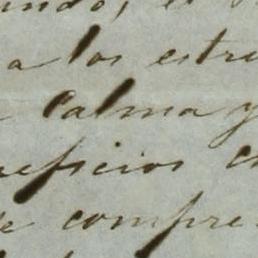 a los estre
calma y
neficios
de compre